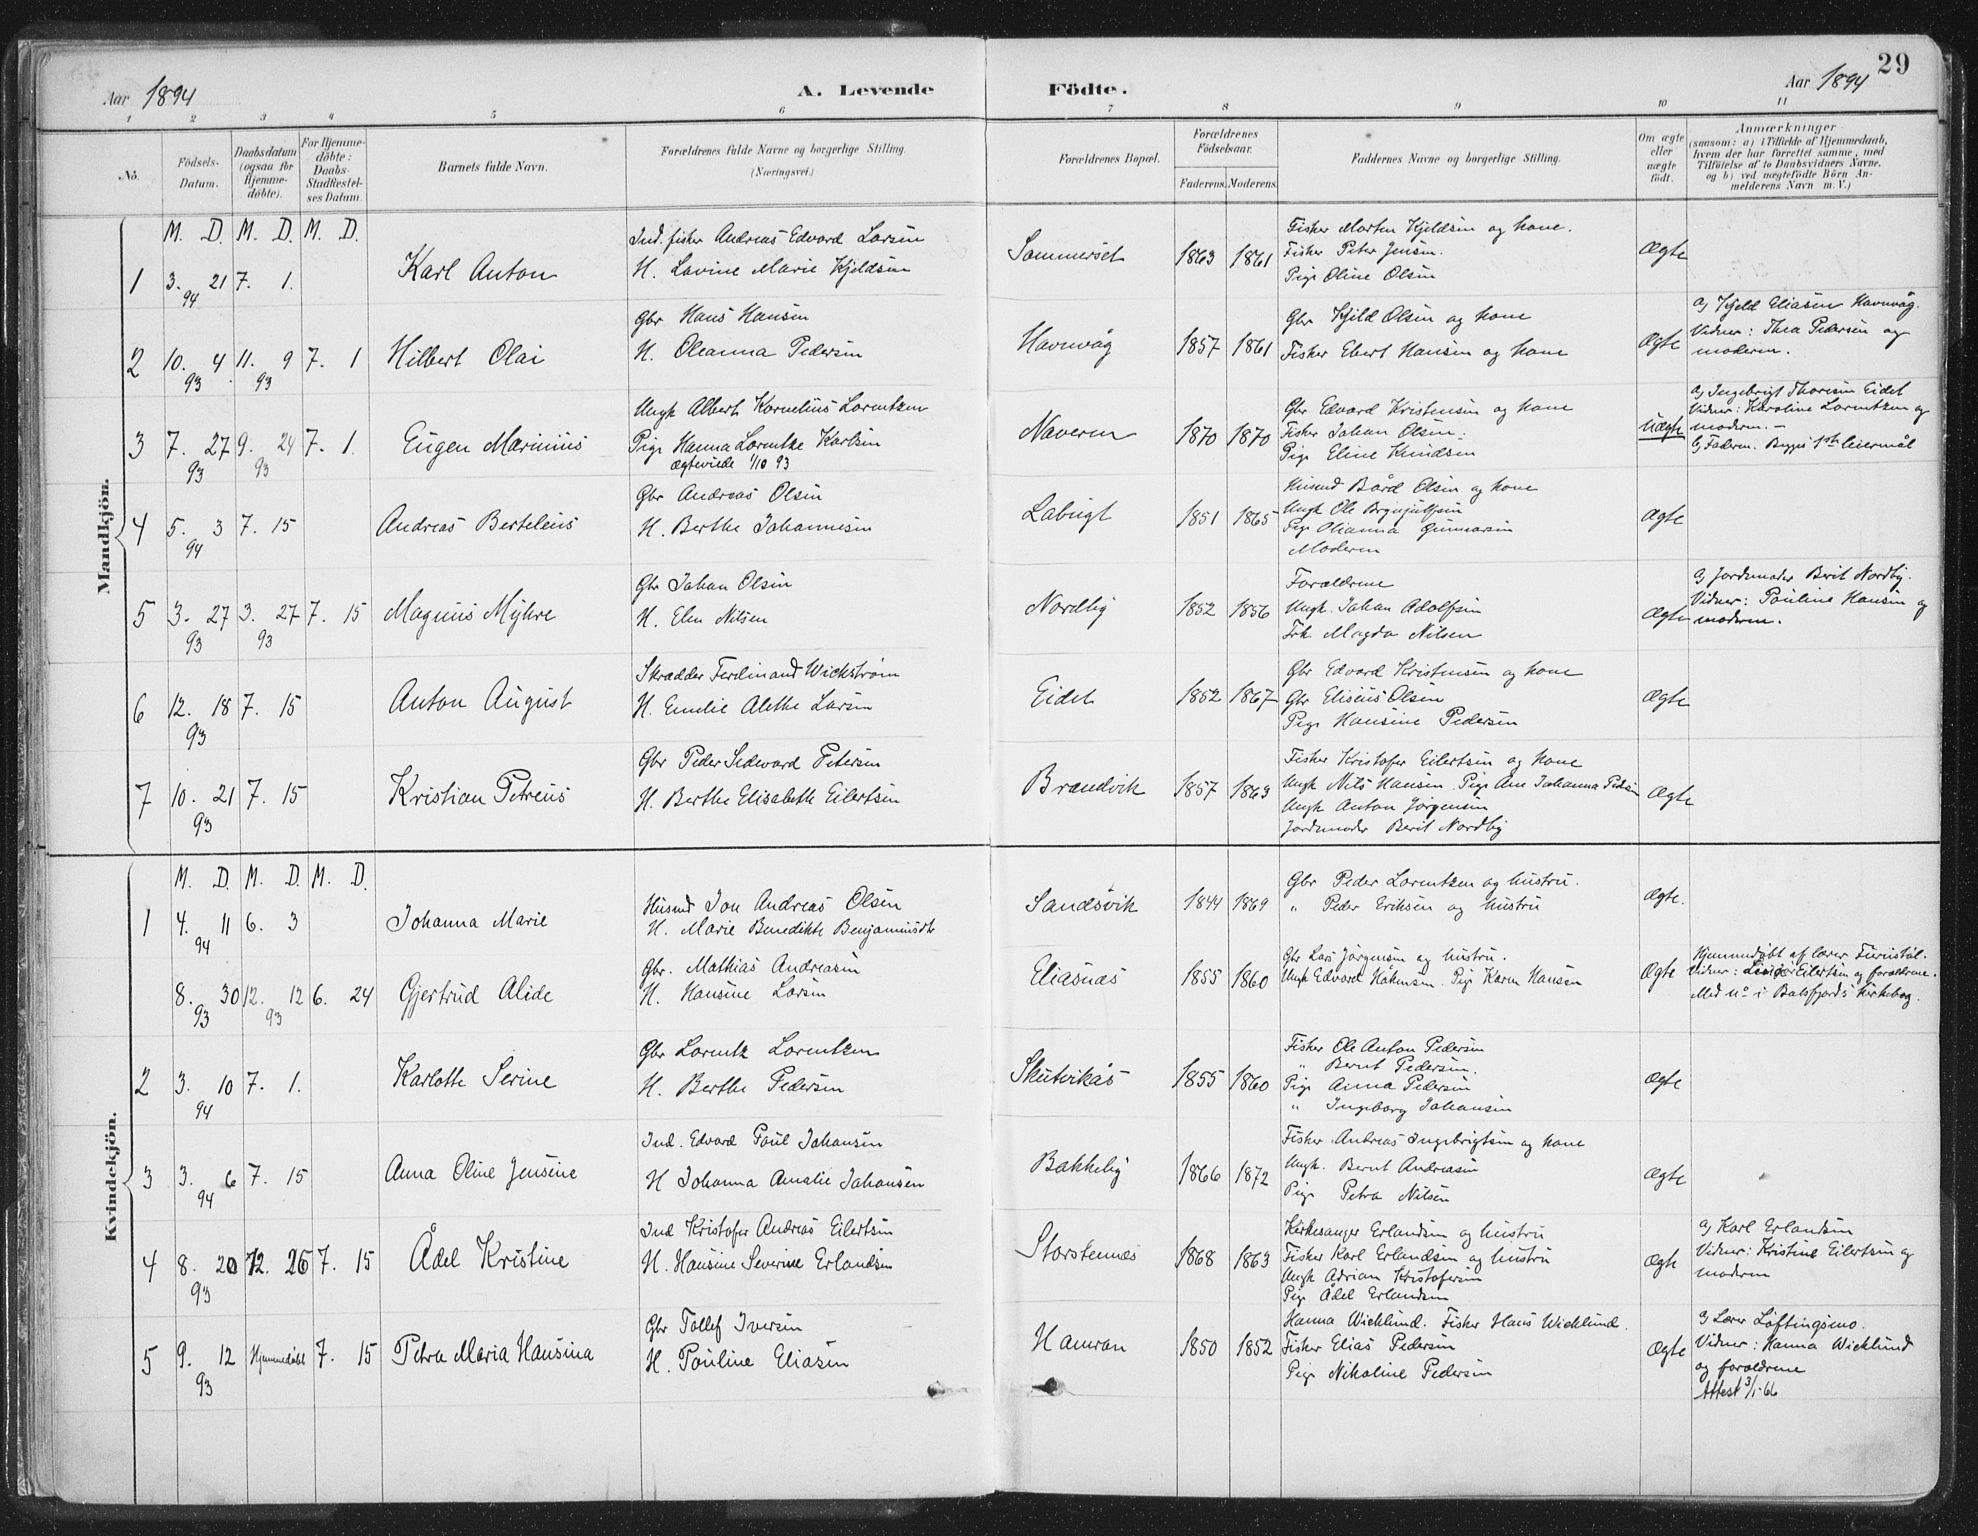 29
Aar 1894 A. Levende Födte. Aar 1894
1 2 3 4 5 6 7 8 9 10 11
No.
Födsels-Datum.
Daabsdatum (ogsaa for Hjemme-döbte).
For Hjemme-döbte: Daabs-Stadfæstel-ses Datum.
Barnets fulde Navn.
Forældrenes fulde Navne og borgerlige Stilling.
(Næringsvei.)
Forældrenes Bopæl.
Forældrenes Födselsaar.
Faderens. Moderens.
Faddernes Navne og borgerlige Stilling.
Om ægte eller uægte födt.
Anmærkninger
(saasom: a) i Tilfælde af Hjemmedaab, hvem der har forrettet samme, med Tilföielse af to Daabsvidners Navne, og b) ved uægtefödte Börn An-melderens Navn m. V.)
Mandkjön.
M. D. M. D. M. D.
1 3. 21 94 7. 1. Karl Anton
Ind. fisker Andreas Edvard Larsen
H. Lovine Marie Kjeldsen
Sommerset 1863 1861
Fisker Morten Kjeldsen og kone.
Fisker Peter Jensen.
Pige Oline Olsen
Ægte
2 10. 4 93 11. 9 93 7. 1 Hilbert Olai
Gbr Hans Hansen
H. Oleanna Pedersen
Havnvåg 1857 1861
Gbr Kjeld Olsen og kone
Fisker Ebert Hansen og kone
Ægte
a) Kjeld Eliasen Havnvåg.
Vidner: Thea Pedersen og
moderen.
3 7. 27 93 9. 24 93 7. 1. Eugen Marinius
Ungk Albert Kornelius Lorentzen
Pige Hanna Lorentze Karlsen
ægteviede 1/10 93
Naveren 1870 1870
Gbr Edvard Kristensen og kone
Fisker Johan Olsen.
Pige Eline Knudsen
Uægte
a) Ingebrigt Thoresen Eidet
Vidner: Karoline Lorentzen og
moderen. —
b) Faderen. Begges 1ste leiermål
4 5. 3 94 7. 15 Andreas Berteleus
Gbr Andreas Olsen
H. Berthe Johannesen
Labugt 1851 1865
Husmd Bård Olsen og kone
Ungk Ole Brynjulfsen
Pige Olianna Gunnarsen
Moderen
Ægte
5 3. 27 93 3. 27 93 7. 15 Magnus Myhre
Gbr Johan Olsen
H. Elen Nilsen
Nordby 1852 1856
Forældrene
Ungk. Johan Adolfsen
Frk. Magda Nilsen
Ægte
a) Jordmoder Berit Nordby.
Vidner: Pauline Hansen og
moderen.
6 12. 18 93 7. 15 Anton August
Skrædder Ferdinand Wickstrøm
H. Emelie Alethe Larsen
Eidet 1852 1867
Gbr Edvard Kristensen og kone
Gbr Eliseus Olsen
Pige Hansine Pedersen
Ægte
7 10. 21 93 7. 15 Kristian Petreus
Gbr Peder Sedevard Petersen
H. Berthe Elisabeth Eilertsen
Brændvik 1857 1863
Fisker Kristofer Eilertsen og kone
Ungk Nils Hansen. Pige Ane Johanna Pedsen
Ungk Anton Jørgensen
Jordmoder Berit Nordby
Ægte
Kvindekjön.
M. D. M. D. M. D.
1 4. 11 94 6. 3 Johanna Marie
Husmd Jon Andreas Olsen
H. Marie Benedikte Benjaminsdtr
Sandsvik 1844 1869
Gbr Peder Lorentzen og hustru.
" Peder Eriksen og hustru
Ægte.
8. 30 93 12. 12 93 6. 24 Gjertrud Alide
Gbr. Mathias Andreasen
H. Hansine Larsen
Eliasnæs 1855 1860
Gbr Lars Jørgensen og hustru.
Ungk Edvard Håkensen. Pige Karen Hansen
Ægte
Hjemmedøbt af lærer Furustøl.
Vidner: Eilertsen og forældrene.
Med no i Balsfjords kirkebog.
2 3. 10 94 7. 1. Karlotte Serine
Gbr Lorentz Lorentzen
H. Berthe Pedersen
Skutvikås 1855 1860
Fisker Ole Anton Pedersen
" Bernt Pedersen.
Pige Anna Pedersen
" Ingeborg Johansen
Ægte
3 3. 6 94 7. 15 Anna Oline Jensine
Ind. Edvard Poul Johansen
H Johanna Amalie Johansen
Bakkeby 1866 1872
Fisker Andreas Ingebrigtsen og kone
Ungk. Bernt Andreasen
Pige Petra Nilsen
Ægte
4 8. 20 93 12. 26 7. 15 Ådel Kristine
Ind Kristofer Andreas Eilertsen
H. Hansine Severine Erlandsen
Storstennæs 1868 1863
Kirkesanger Erlandsen og hustru
Fisker Karl Erlandsen og hustru
Ungk Adrian Kristofersen
Pige Ådel Erlandsen
Ægte
a) Karl Erlandsen
Vidner: Kristine Eilertsen og
moderen
5 9. 12 93 Hjemmedøbt 7. 15 Petra Maria Hansina
Gbr Tollef Iversen
H. Pouline Eliasen
Hamran 1850 1852
Hanna Wicklund. Fisker Hans Wicklund.
Fisker Elias Pedersen
Pige Nikoline Pedersen
Ægte
a) Lærer Løftingsmo.
Vidner: Hanna Wicklund
og forældrene
Attest 3/1-66